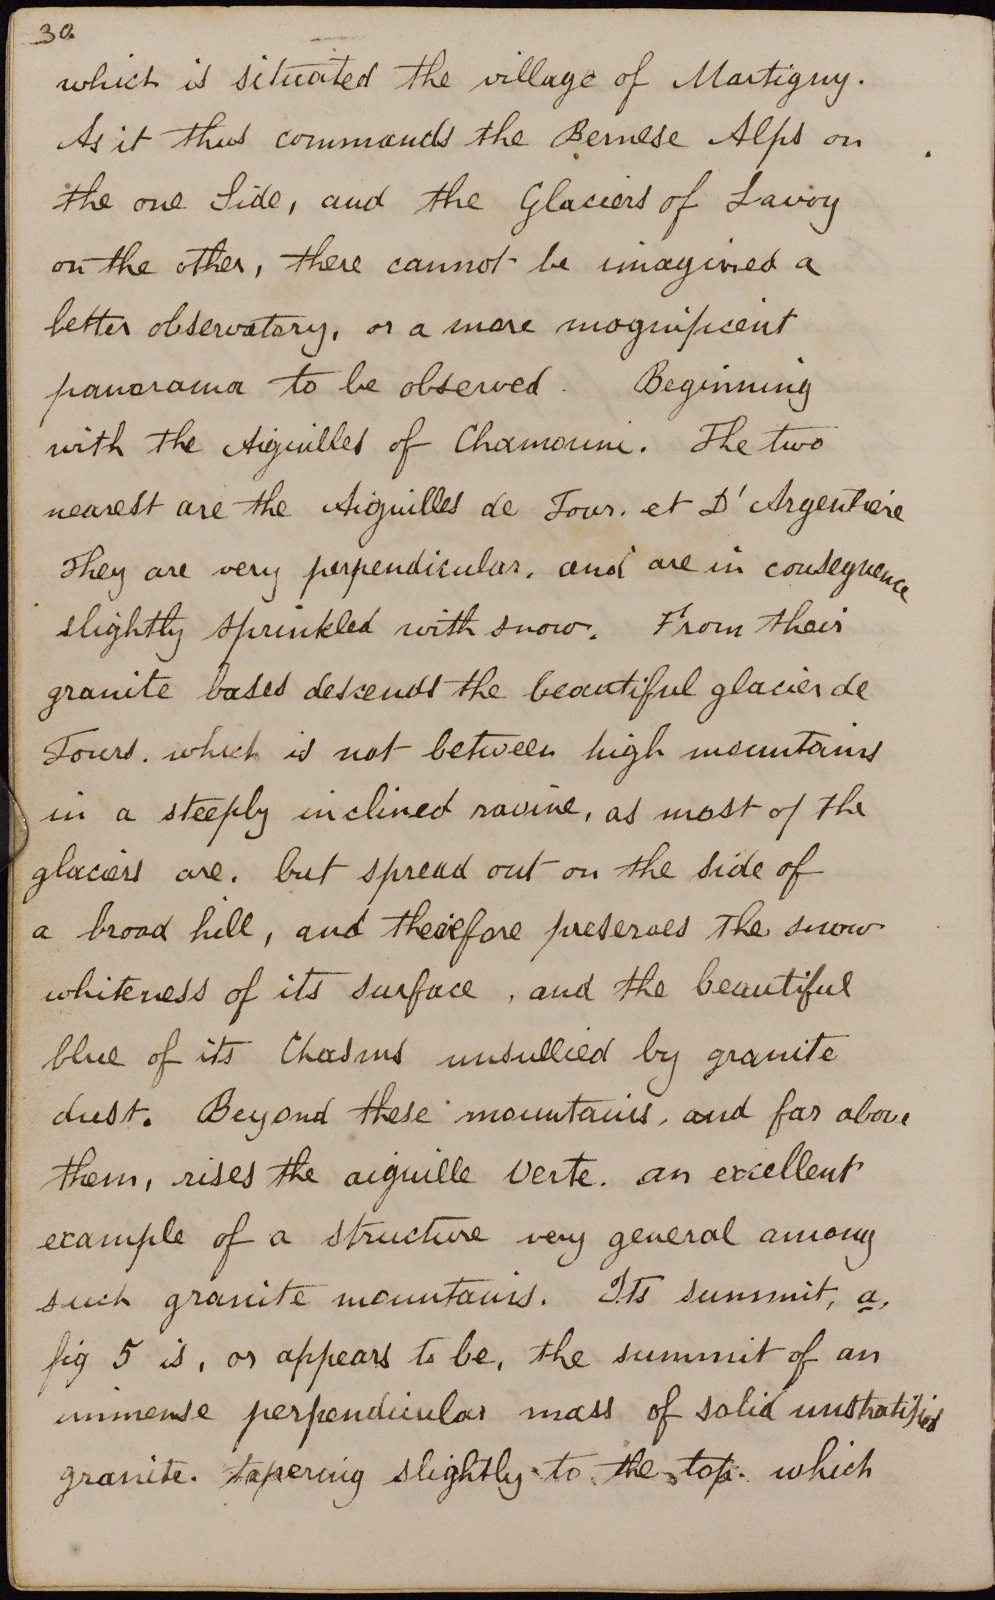 30.
which is situated the village of Martigny.
As it thus commands the Bernese Alps on
the one Side, and the Glaciers of Savoy
on the other, there cannot be imagined a
better observatory, or a more magnificent
panorama to be observed. Beginning
with the Aiguilles of Chamouni. The two
nearest are the Aiguilles de Tour. et D'Argentiere
They are very perpendicular, and are in consequence
slightly sprinkled with snow. From their
granite bases descends the beautiful glacier de
Tours. which is not between high mountains
in a steeply inclined ravine, as most of the
glaciers are. but spread out on the side of
a broad hill, and therefore preserves the snow
whiteness of its surface, and the beautiful
blue of its Chasms unsullied by granite
dust. Beyond these mountains, and far above
them, rises the aiguille Verte. an excellent
example of a structure very general among
such granite mountains. Its summit, a,
fig 5 is, or appears to be, the summit of an
immense perpendicular mass of solid unstratified
granite. tapering slightly to the top. which